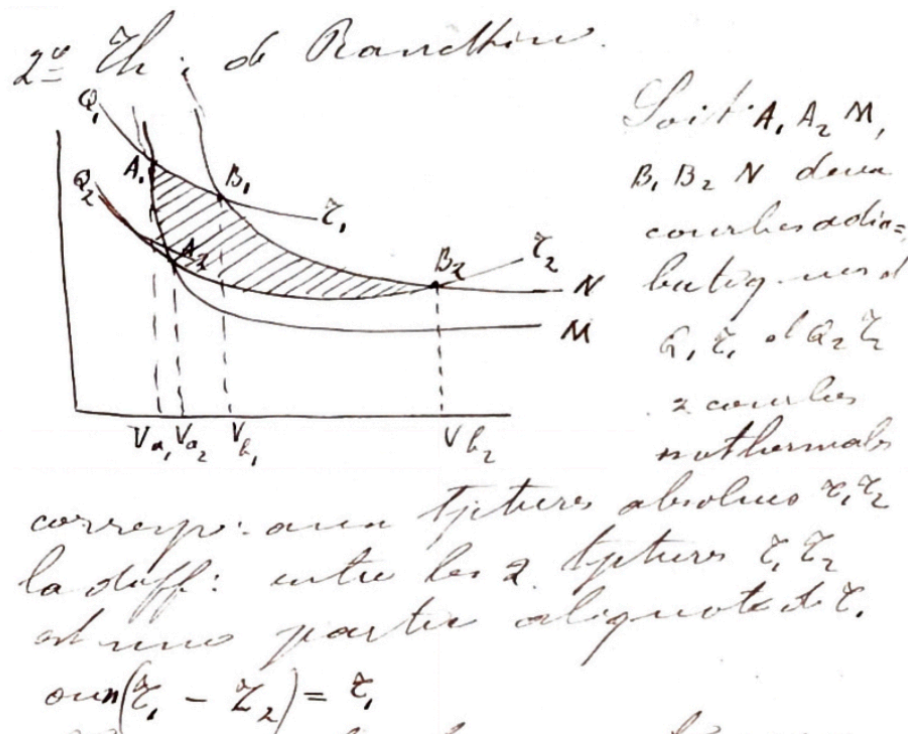 2e Th: de Rancthine.
Q1
A1
B1
Q2
A2
τ1
B2
τ2
N
M
Va1 Va2 Vb1 Vb2
Soit A1 A2 M,
B1 B2 N deux
courbes adia=
batiques et
Q1 τ1 et Q2 τ2
2 courbes
isothermals
corresp: aux tptures absolues τ1 τ2
la diff: entre les 2 tptures τ1 τ2
est une partie aliquote de τ1
ou n(τ1 - τ2) = τ1